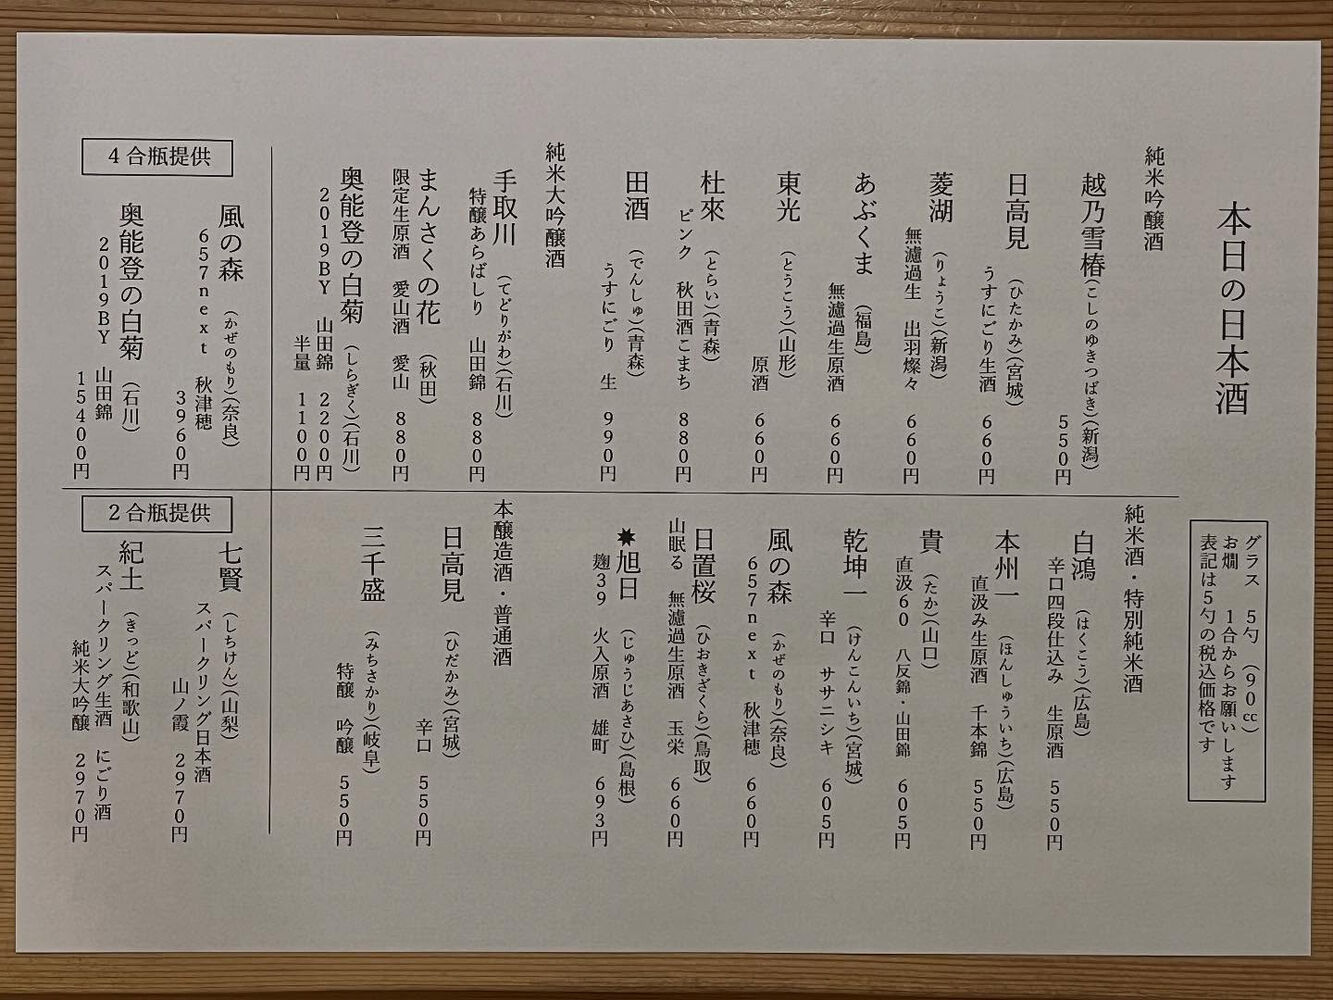 本日の日本酒
グラス 5勺 (90cc)
お燗 1合からお願いします
表記は5勺の税込価格です
純米吟醸酒
越乃雪椿(こしのゆきつばき)(新潟)
550円
日高見 (ひたかみ)(宮城)
うすにごり生酒 660円
菱湖 (りょうこ)(新潟)
無濾過生 出羽燦々 660円
あぶくま (福島)
無濾過生原酒 660円
東光 (とうこう)(山形)
原酒 660円
杜來 (とらい)(青森)
ピンク 秋田酒こまち 880円
田酒 (でんしゅ)(青森)
うすにごり 生 990円
純米大吟醸酒
手取川 (てどりがわ)(石川)
特醸あらばしり 山田錦 880円
まんさくの花 (秋田)
限定生原酒 愛山酒 愛山 880円
奥能登の白菊 (しらぎく)(石川)
2019BY 山田錦 2200円
半量 1100円
純米酒・特別純米酒
白鴻 (はくこう)(広島)
辛口四段仕込み 生原酒 550円
本州一 (ほんしゅういち)(広島)
直汲み生原酒 千本錦 550円
貴 (たか)(山口)
直汲60 八反錦・山田錦 605円
乾坤一 (けんこんいち)(宮城)
辛口 ササニシキ 605円
風の森 (かぜのもり)(奈良)
657next 秋津穂 660円
日置桜 (ひおきざくら)(鳥取)
山眠る 無濾過生原酒 玉栄 660円
✷旭日 (じゅうじあさひ)(島根)
麹39 火入原酒 雄町 693円
本醸造酒・普通酒
日高見 (ひだかみ)(宮城)
辛口 550円
三千盛 (みちさかり)(岐阜)
特醸 吟醸 550円
4合瓶提供
風の森 (かぜのもり)(奈良)
657next 秋津穂
3960円
奥能登の白菊 (石川)
2019BY 山田錦
15400円
2合瓶提供
七賢 (しちけん)(山梨)
スパークリング日本酒
山ノ霞 2970円
紀土 (きっど)(和歌山)
スパークリング生酒 にごり酒
純米大吟醸 2970円